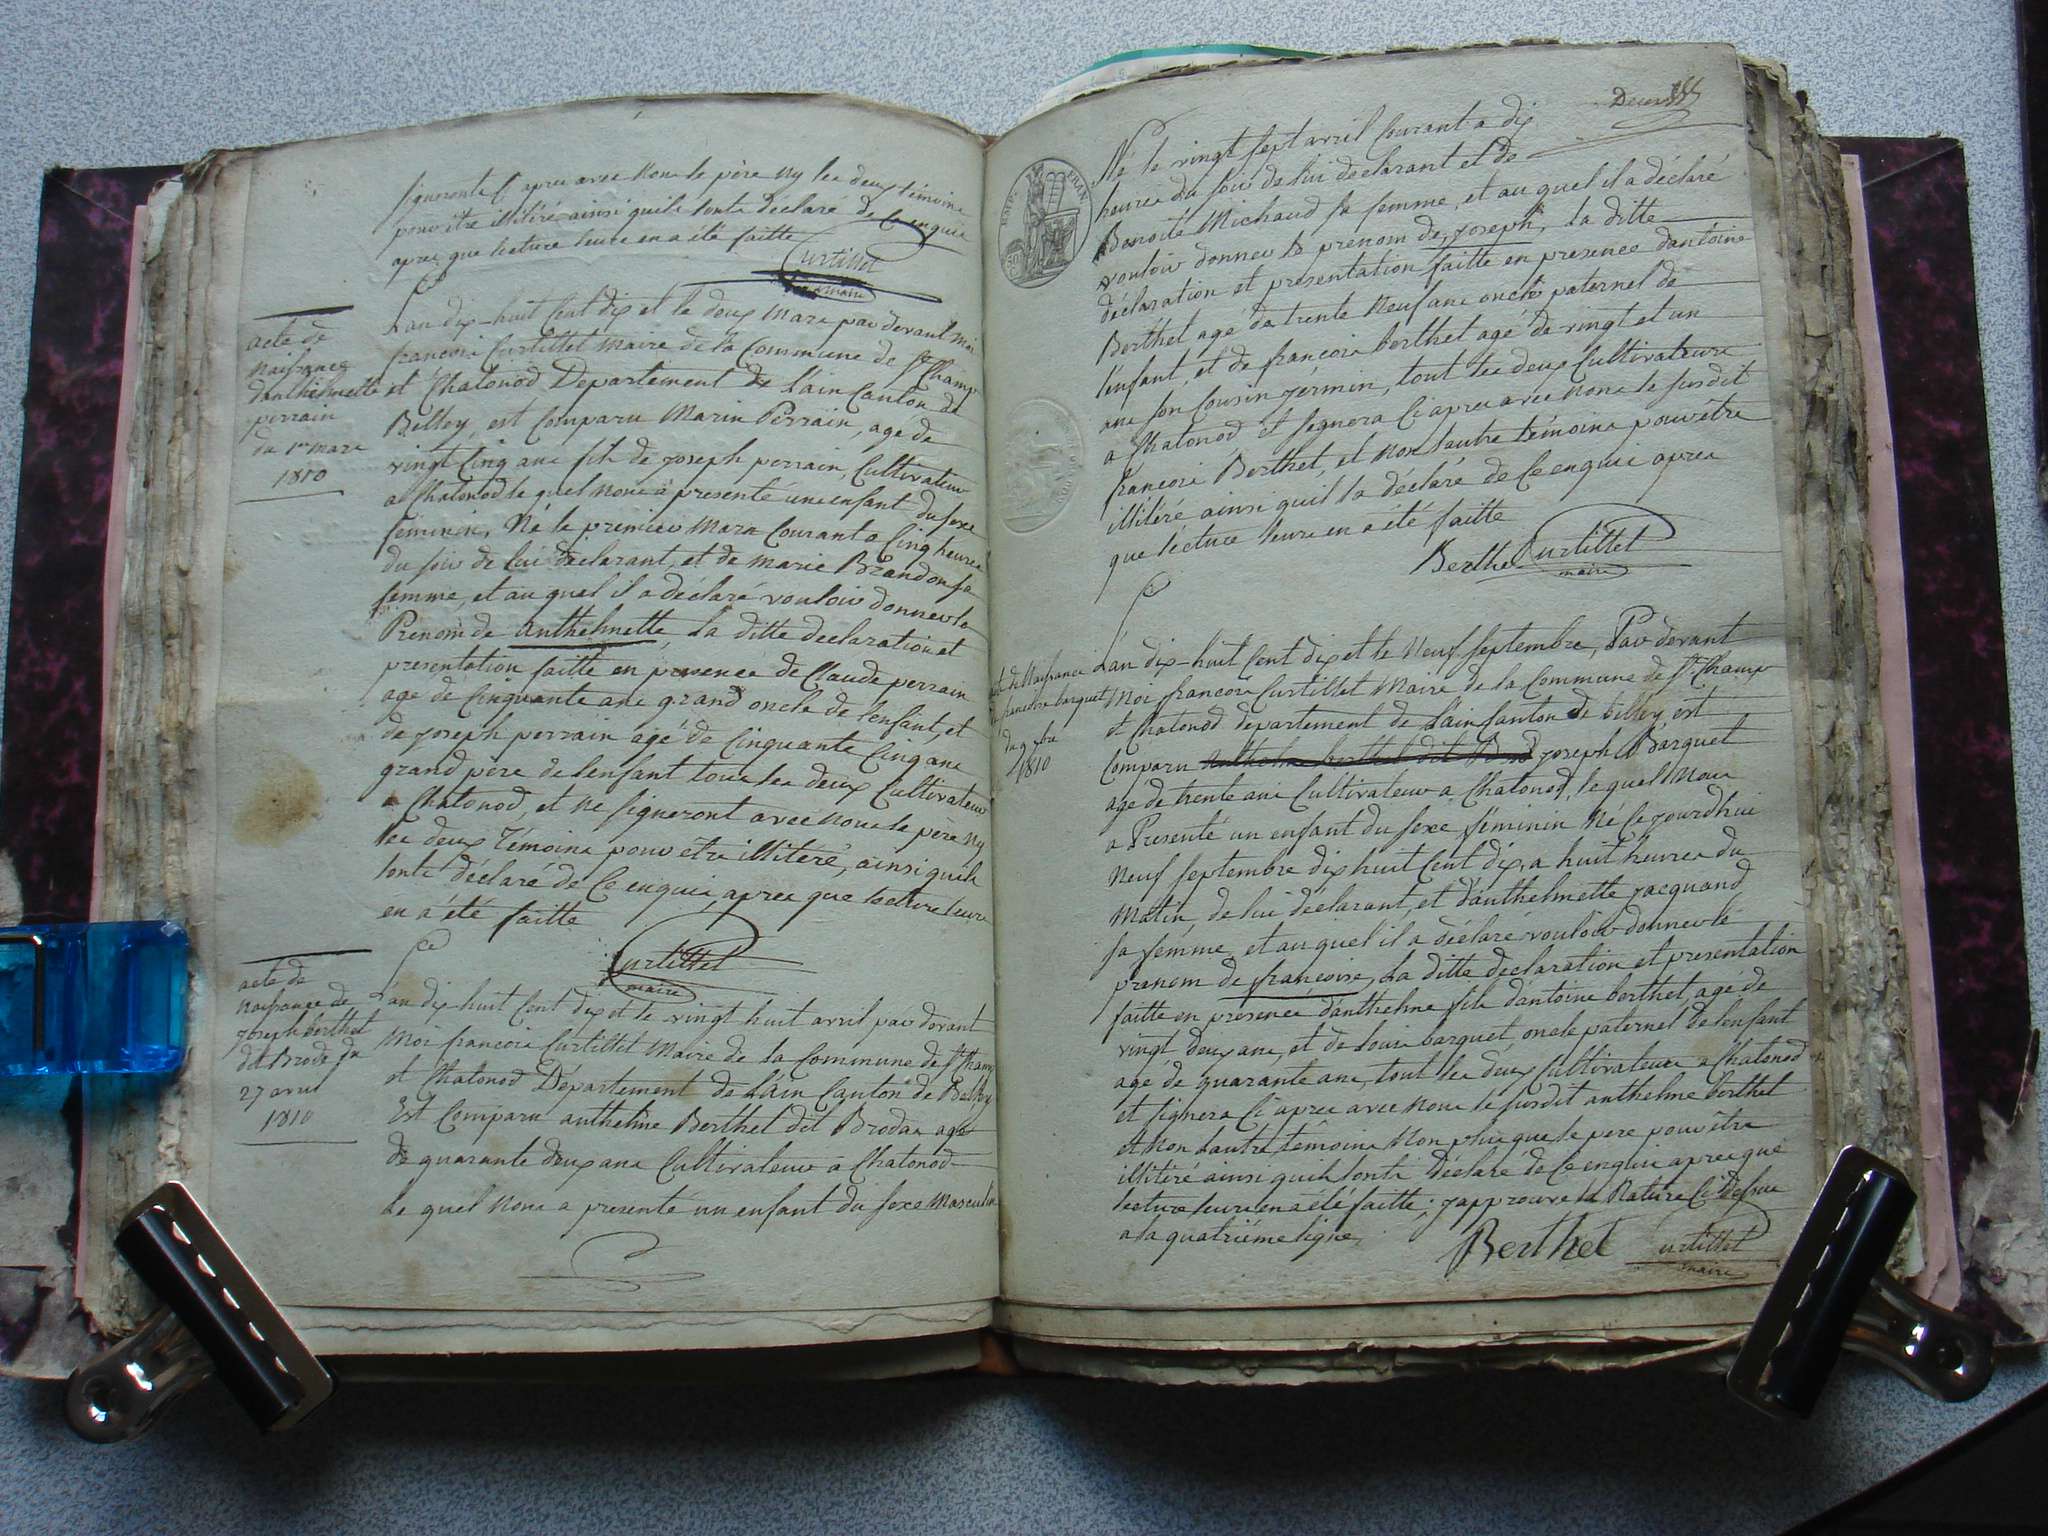 signeront Ci apres avec nous le père ny les deux témoins
pour être illitéré ainsi quils l'onts déclaré de Ce enquis
apres que lecture leurs en a été faitte
Curtillet
maire
acte de
naissance
d'anthelmette
perrain
du 1er mars
1810
L'an dix-huit Cent dix et le deux Mars par devant Moi
francois Curtillet Maire de la Commune de St Champ
et Chatonod Departement de l'ain Canton de
Belley, est Comparu Marin Perrain, agé de
vingt Cinq ans fils de joseph perrain, Cultivateur
a Chatonod le quel nous a presenté un enfant du sexe
féminin, Né le premier Mars Courant a Cinq heures
du soir de lui déclarant, et de marie Brandon sa
femme, et au quel il a déclaré vouloir donner le
Prénom de anthelmette la ditte declaration et
presentation faitte en présence de Claude perrain
agé de Cinquante ans grand oncle de l'enfant, et
de joseph perrain agé de Cinquante Cinq ans
grand père de l'enfant tous les deux Cultivateur
a Chatonod, et ne signeront avec nous le père ny
les deux Témoins pour etre illitéré, ainsi quils
l'onts déclaré de Ce enquis apres que lecture leurs
en a été faitte
Curtillet
maire
acte de
naissance de
joseph berthet
dit Brode du
27 avril
1810
L'an dix-huit Cent dix et le vingt huit avril par devant
Moi francois Curtillet Maire de la Commune de St Champ
et Chatonod Département de l'ain Canton de Belley
Est Comparu anthelme Berthet dit Brodas agé
de quarante deux ans Cultivateur a Chatonod
le quel nous a presenté un enfant du sexe Masculin
Né le vingt sept avril Courant a dix
heures du soir de lui declarant et de
Benoite Michaud sa femme, et au quel il a déclaré
vouloir donner le prenom de joseph, la ditte
déclaration et présentation faitte en presence d'antoine
Berthet agé de trente Neuf ans oncle paternel de
l'enfant, et de francois berthet agé de vingt et un
ans son Cousin germin, tout les deux Cultivateurs
a Chatonod et signera Ci apres avec nous le susdit
francois Berthet, et non l'autre témoins pour être
illitéré ainsi quil la déclaré de Ce enquis apres
que lecture leurs en a été faitte
Berthet Curtillet
maire
acte de Naissance
de francoise barquet
du 9 7bre
1810
L'an dix-huit Cent dix et le Neuf septembre, Par devant
Moi francois Curtillet Maire de la Commune de St Champ
et Chatonod departement de l'ain Canton de belley est
Comparu anthelme berthet dit joseph Barquet
agé de trente ans Cultivateur a Chatonod, le quel Nous
a Presenté un enfant du sexe féminin Né Ce jourdhui
Neuf septembre dix huit Cent dix, a huit heures du
Matin, de lui déclarant, et d'anthelmette jacquand
sa femme, et au quel il a déclaré vouloir donner le
prenom de francoise, la ditte declaration et presentation
faitte en présence d'anthelme fils d'antoine berthet, agé de
vingt deux ans, et de louis barquet, oncle paternel de l'enfant
agé de quarante ans, tout les deux Cultivateurs a Chatonod
et signera Ci apres avec nous le susdit anthelme berthet
et Non l'autre témoins Non plus que le pere pour être
illitéré ainsi quils l'onts déclaré de Ce enquis apres que
lecture leurs en a été faitte; j'approuve la Rature Ci dessus
a la quatriéme ligne
Berthet Curtillet
maire